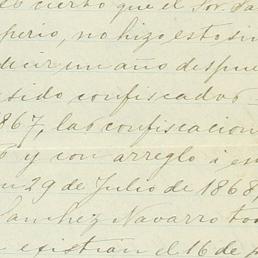 es cierto que el Sor. Sa
perio, no hizo esto sin
decir un año despue
sido confiscados
867, las confiscacion
y con arreglo á es
29 de Julio de 1868,
Sanchez Navarro to
existían el 16 de